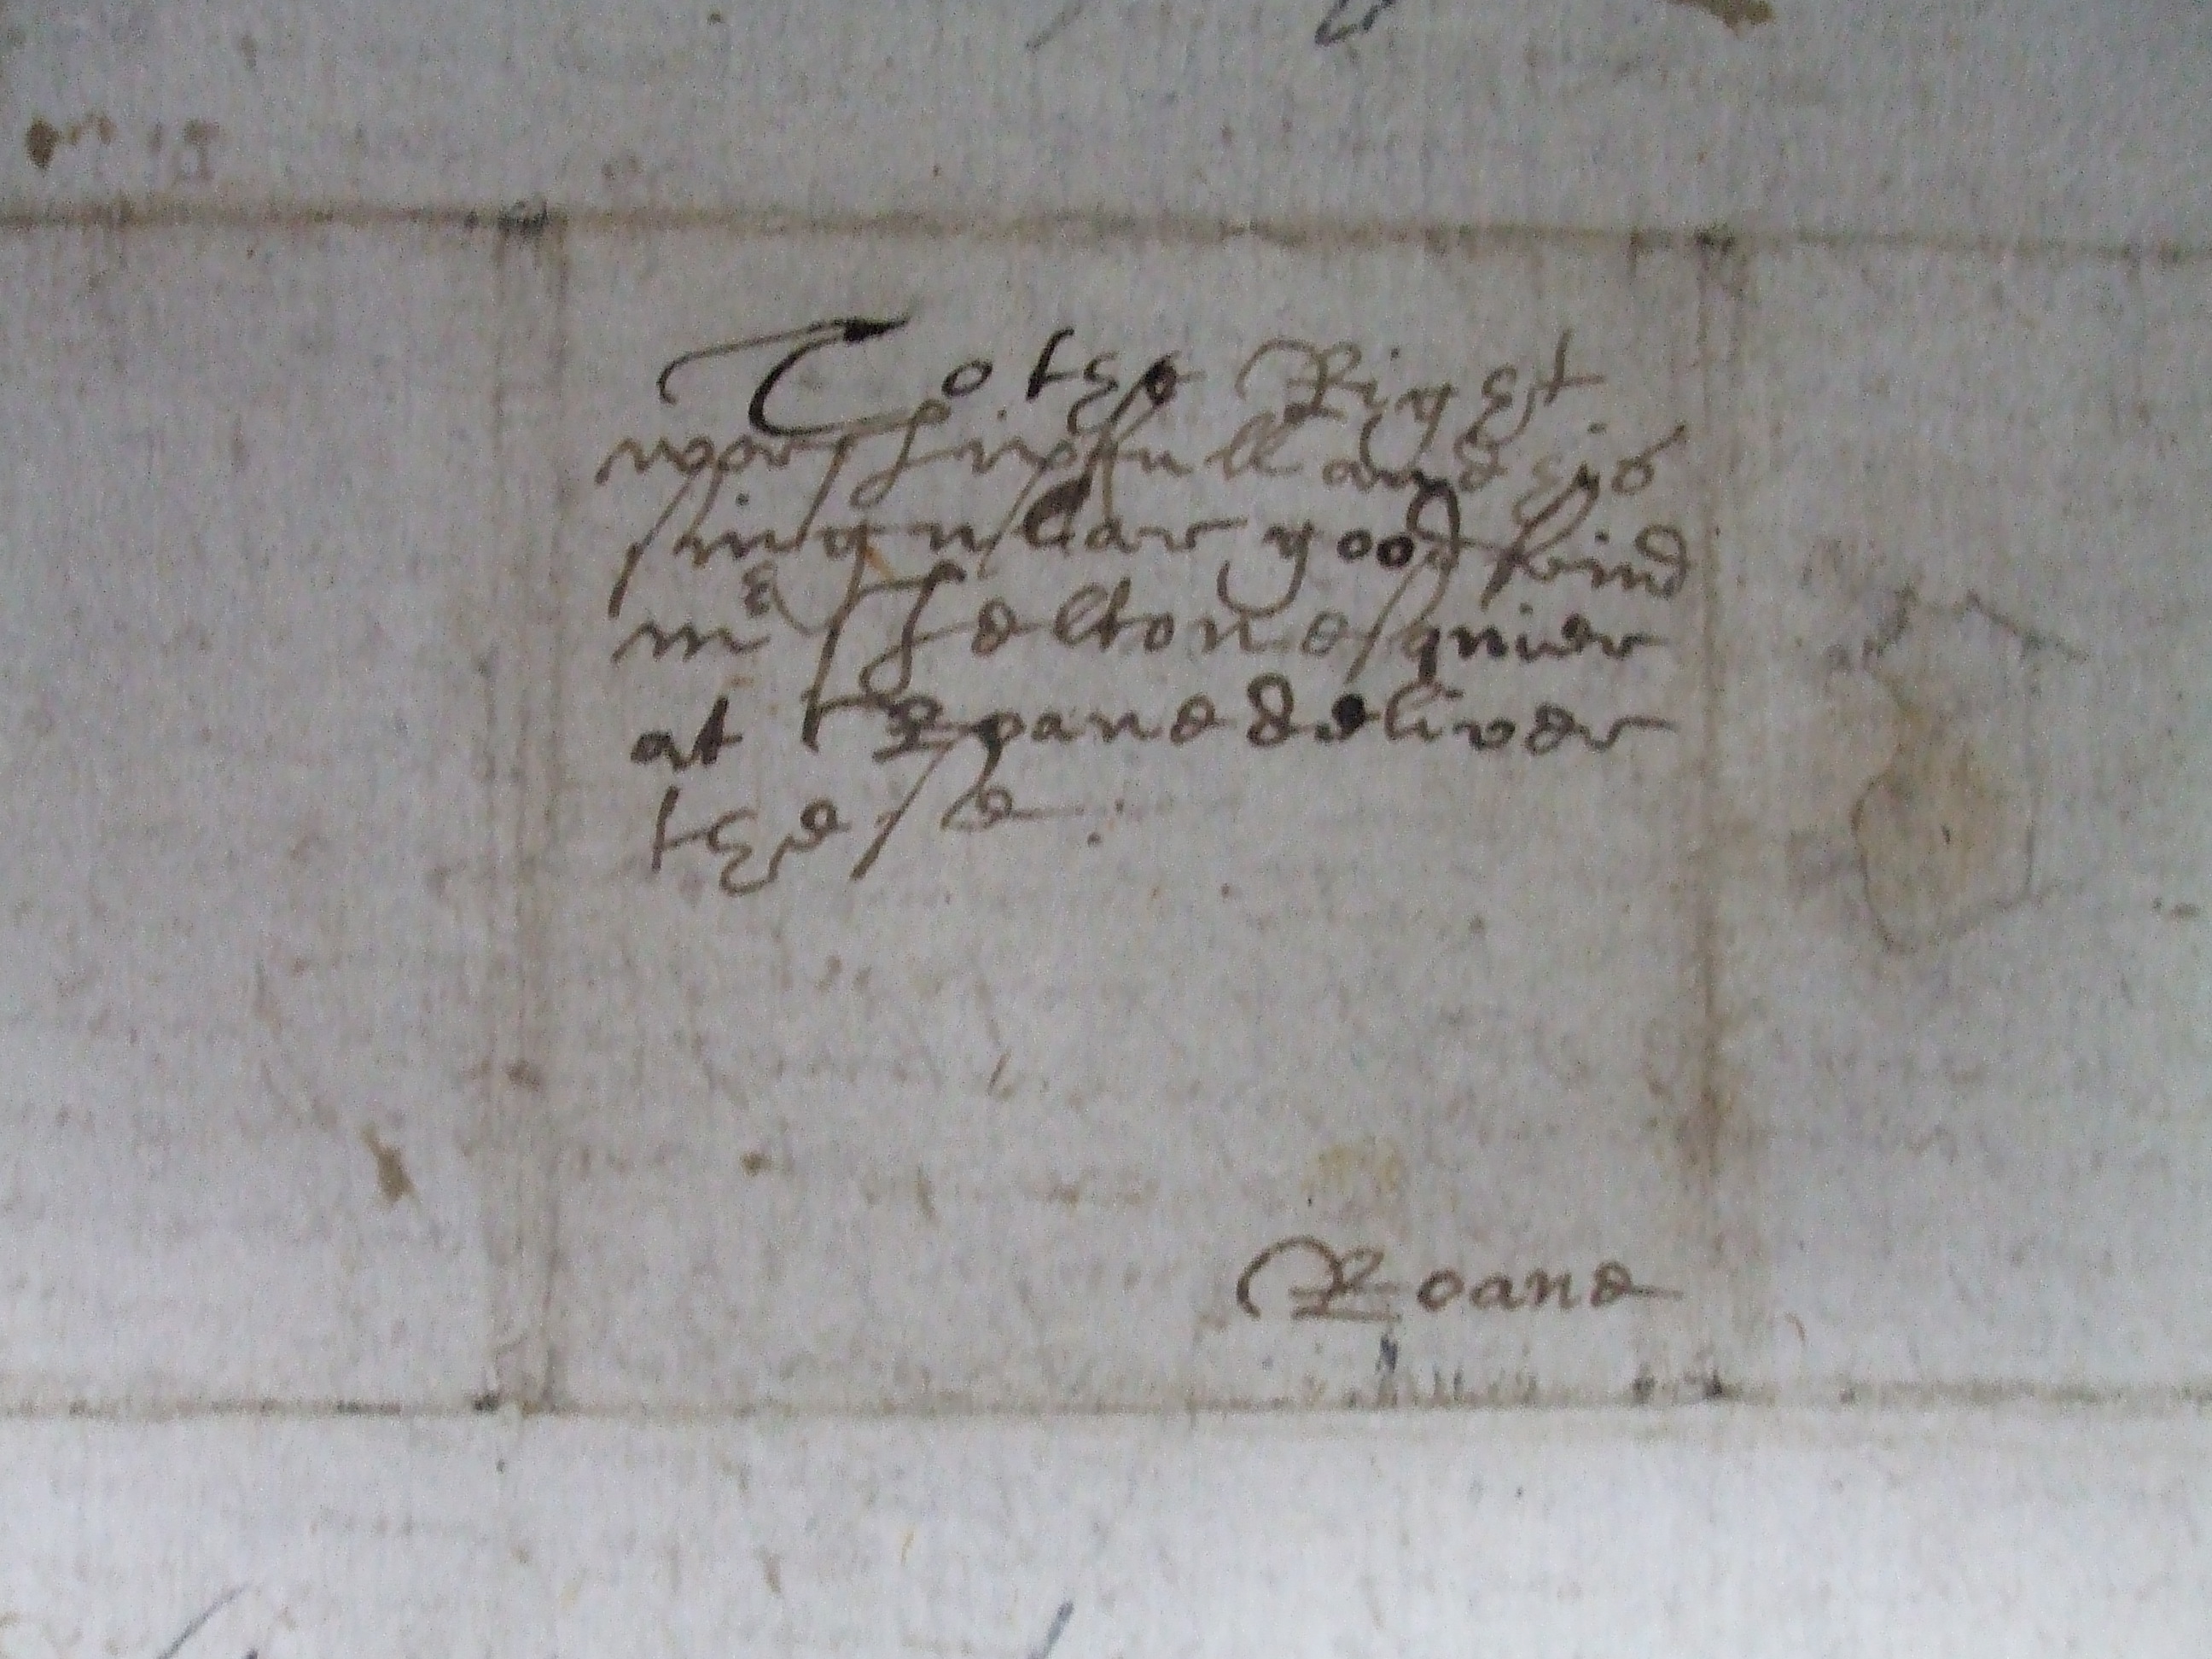 To the Right
worshipfull and his
singular good frind
mr Shelton esquier
at Roane deliver
these :
Roane